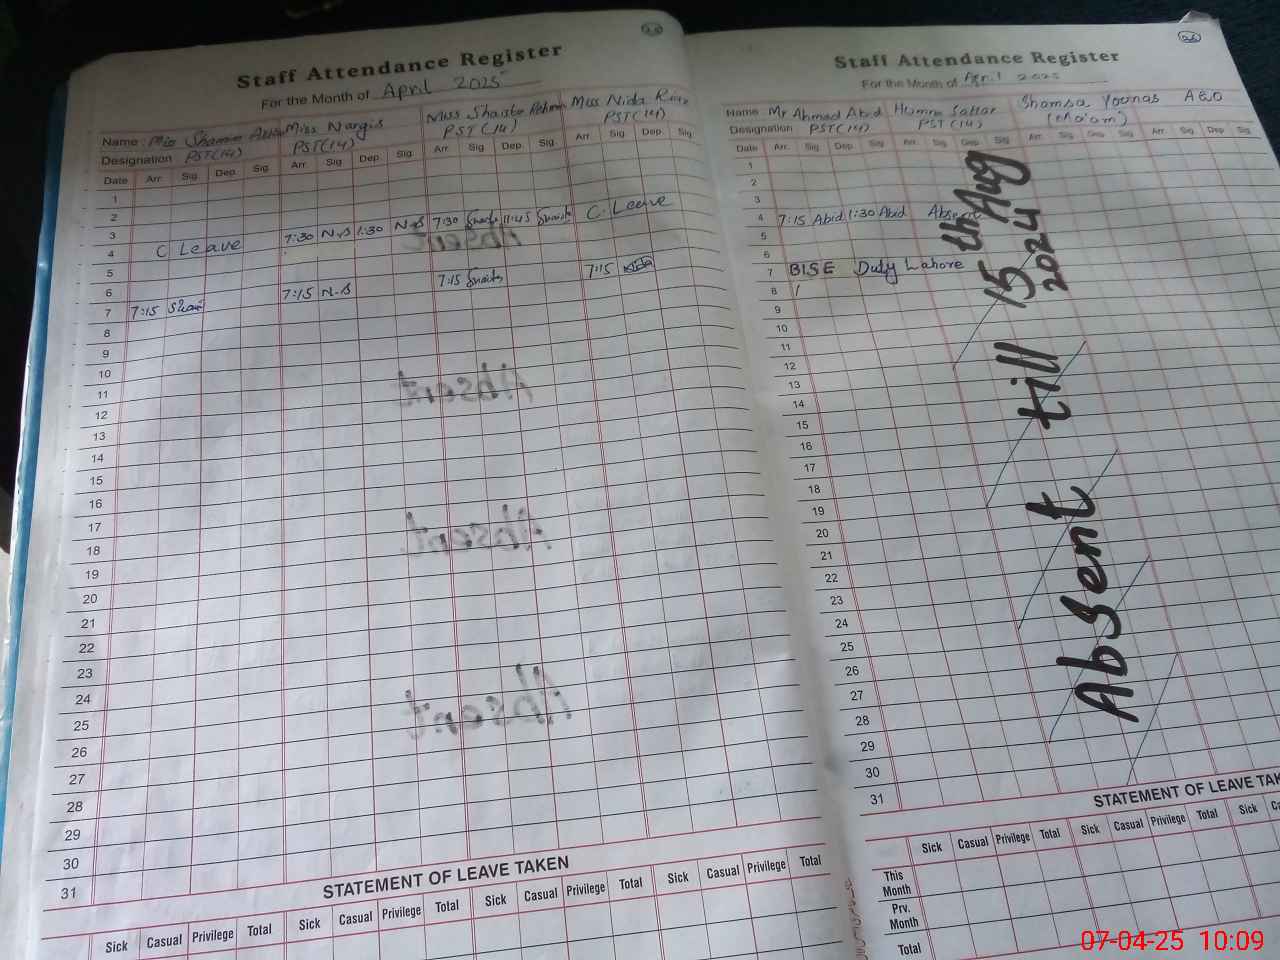 25
Staff Attendance Register
For the Month of April 2025
Name Miss Shamim Miss Nargis Miss Shaista Rehman Miss Nida Riaz
Designation PST(14) PST(14) PST(14) PST(14)
Date Arr. Sig. Dep. Sig. Arr. Sig. Dep. Sig. Arr. Sig. Dep. Sig. Arr. Sig. Dep. Sig.
1
2
3
4 C Leave 7:30 N.S 1:30 N.S 7:30 11:45 C. Leave
5
6
7 7:15 7:15 N.S 7:15 7:15 Nida
8
9
10
11
12
13
14
15
16
17
18
19
20
21
22
23
24
25
26
27
28
29
30
31
STATEMENT OF LEAVE TAKEN
Sick Casual Privilege Total Sick Casual Privilege Total Sick Casual Privilege Total Sick Casual Privilege Total
26
Staff Attendance Register
For the Month of April 2025
Name Mr Ahmad Abid Humra Sattar Shamsa Younas AEO
Designation PST(14) PST(14)
Date Arr. Sig. Dep. Sig. Arr. Sig. Dep. Sig. Arr. Sig. Dep. Sig. Arr. Sig. Dep. Sig.
1
2
3
4 7:15 Abid 1:30 Abid Absent
5
6
7 BISE Duty Lahore
8
9
10
11
12
13
14
15
16
17
18
19
20
21
22
23
24
25
26
27
28
29
30
31
Absent till 15th Aug
2024
STATEMENT OF LEAVE TAK
Sick Casual Privilege Total Sick Casual Privilege Total Sick
This Month
Prv. Month
Total
07-04-25 10:09